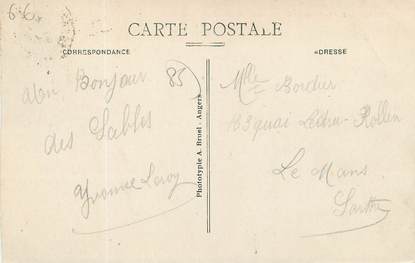 6-6
CARTE POSTALE
CORRESPONDANCE
ADRESSE
Un Bonjour
des Sables
Yvonne Leroy
85
Phototypie A. Bruel - Angers
Mlle Bordier
183 quai Ledru-Rollin
Le Mans
Sarthe